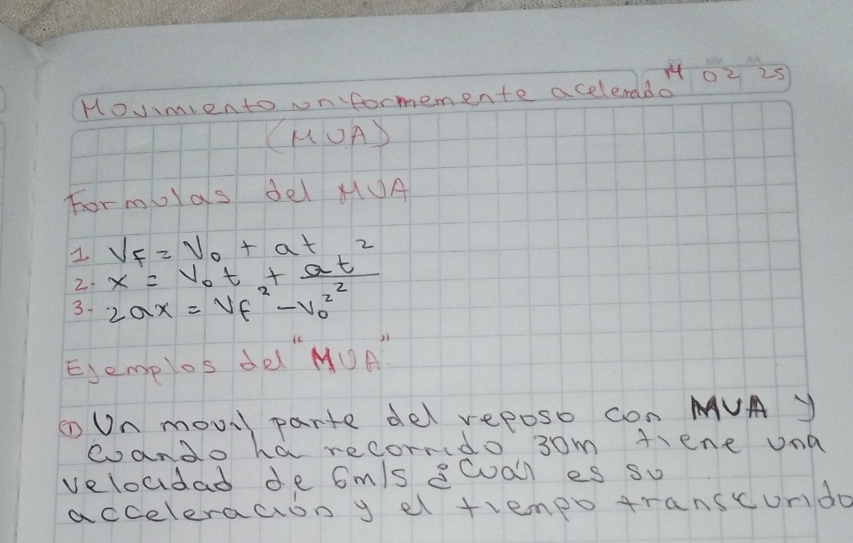 14 02 25
Movimiento uniformemente acelerado
(MUA)
Formulas del MUA
1. Vf = Vo + at
2. x = Vot + at²/2
3. 2ax = Vf² - Vo²
Ejemplos del "MUA".
① Un movil parte del reposo con MUA y
cuando ha recorrido 30m tiene una
velocidad de 6m/s ¿Cual es su
acceleración y el tiempo transcurrido